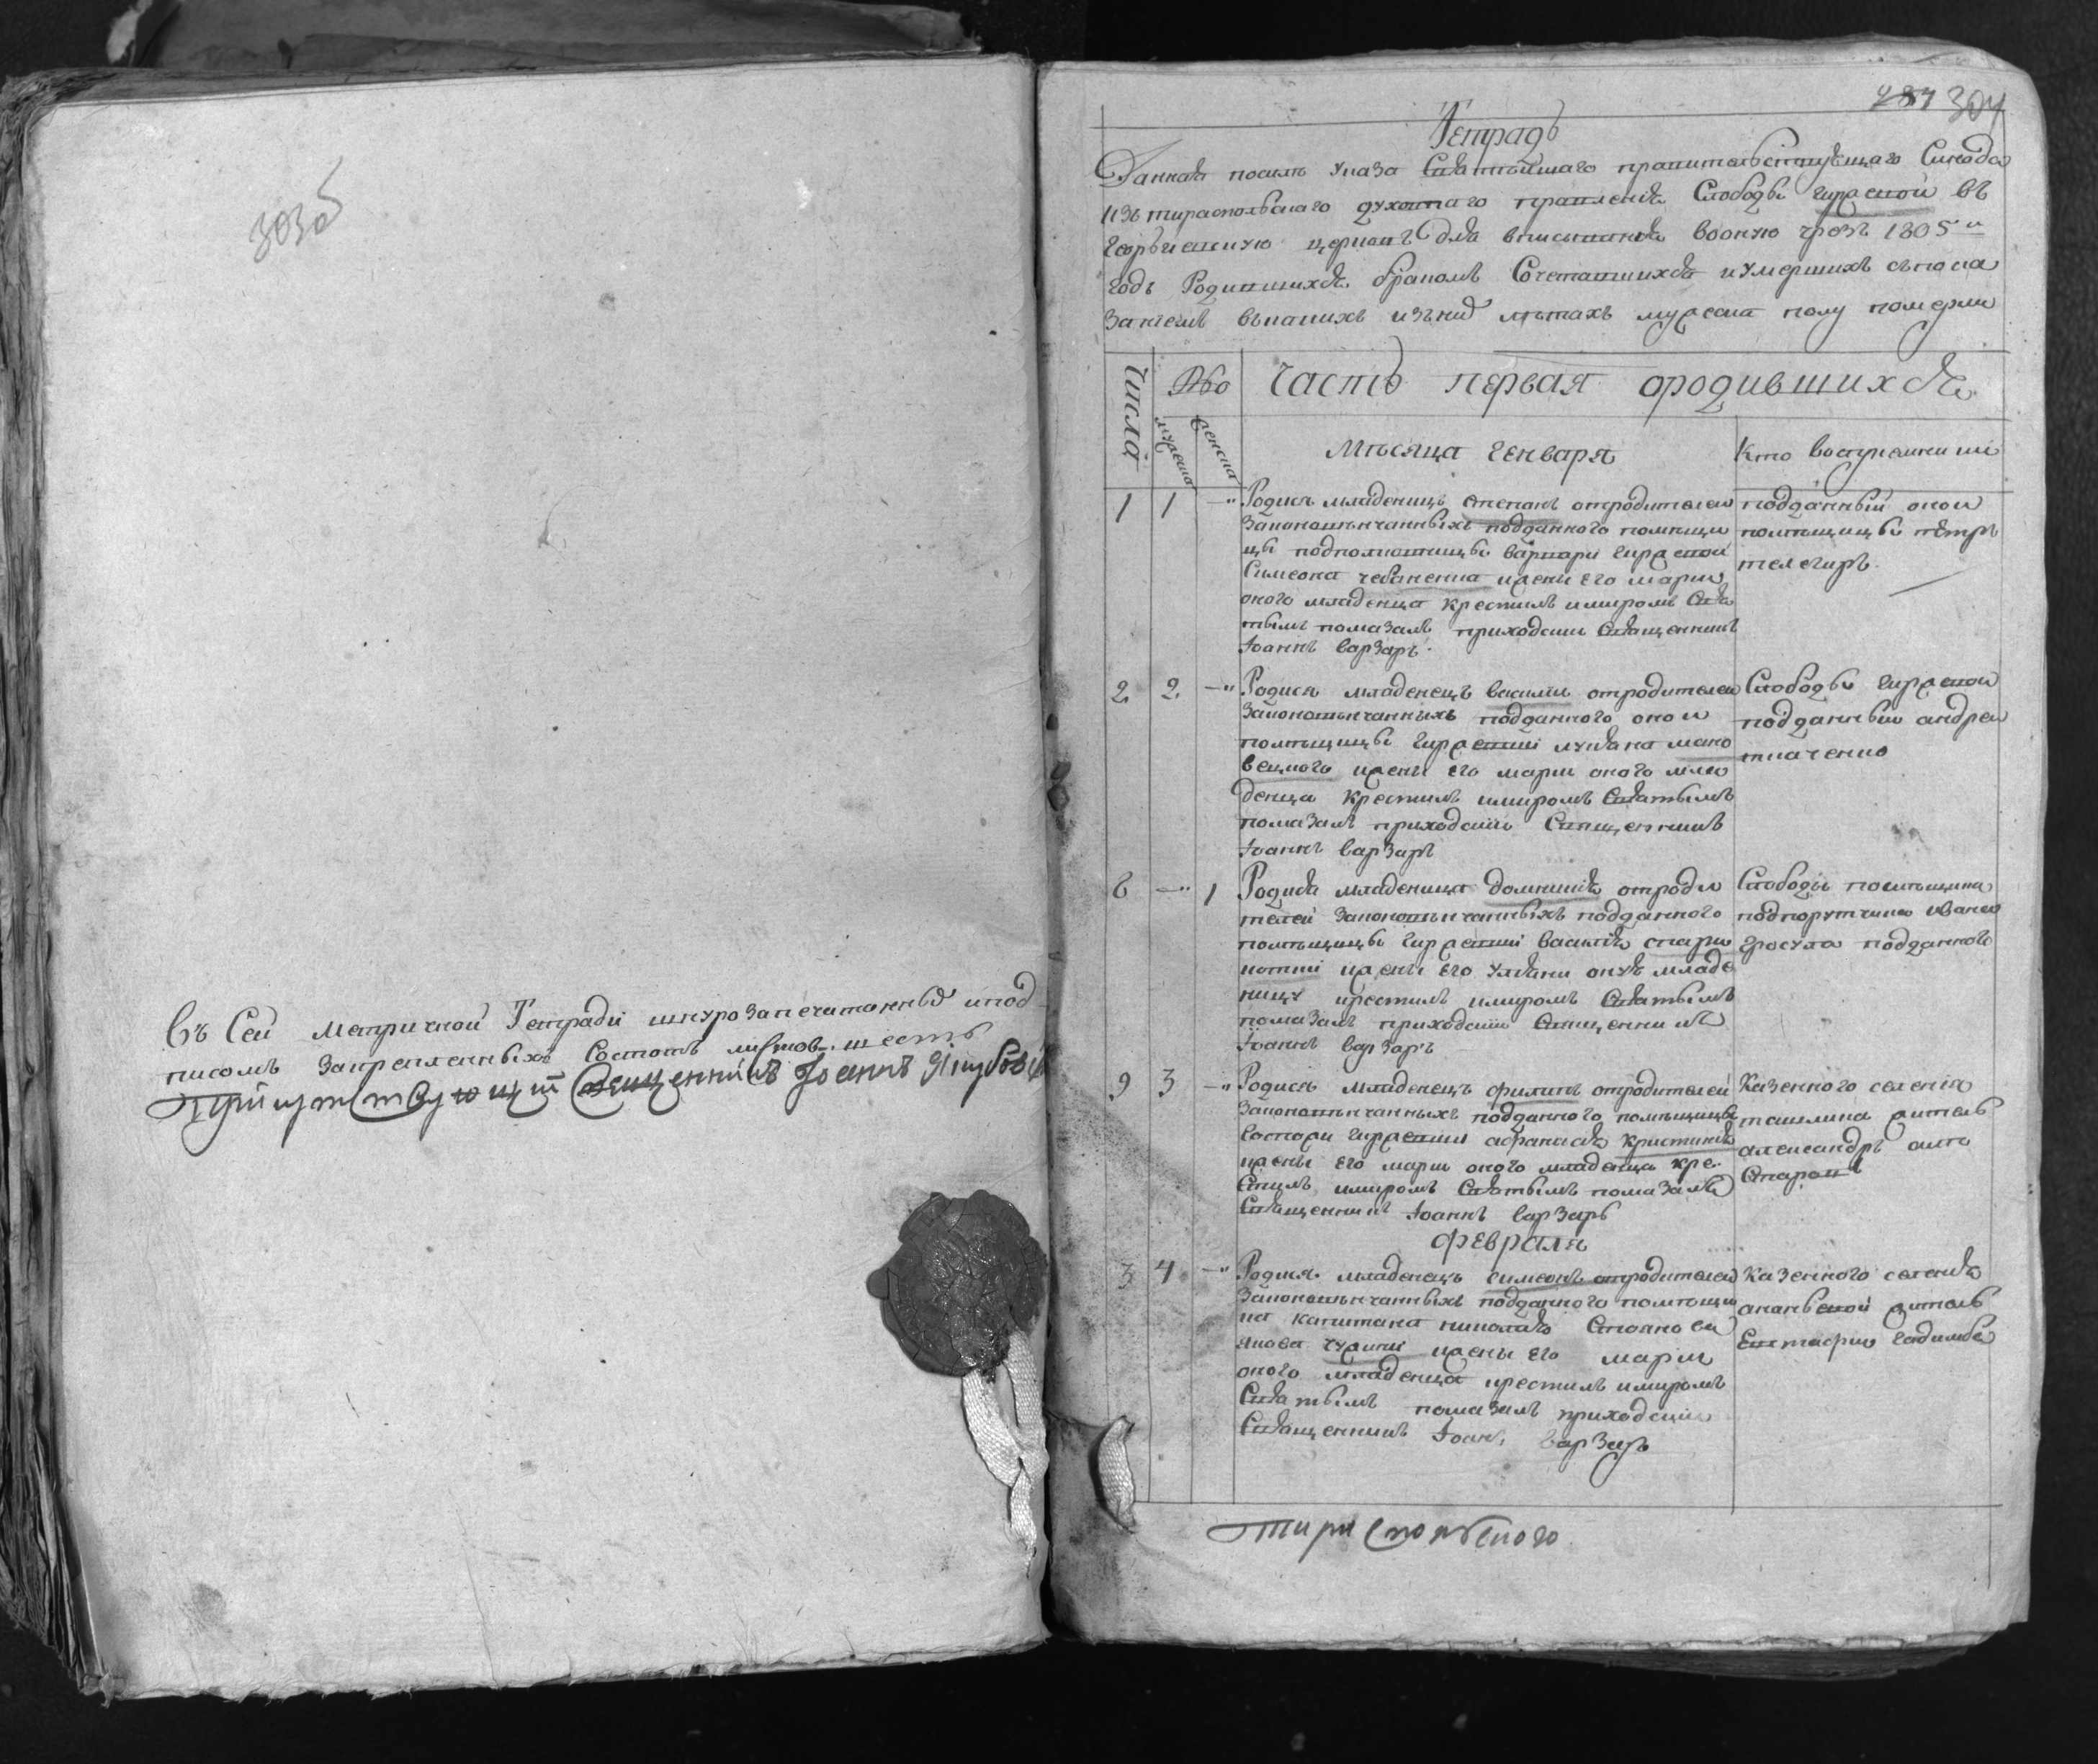 303об
Въ Сей Метричной Тетради шнурозапечатанный и под
писомъ Закрепленныхъ Состоитъ листовъ шесть
Присутствующий Священникъ Иоаннъ
304
Тетрадь
Данная посилѣ указа Святѣйшаго правительствующаго Синода
изъ тираспольскаго духовнаго правленія Слободы гиржевой въ
Георгиевскую церковь для вписыванія во оную чрезъ 1805й
годъ Родившихся бракомъ Сочетавшихся и умершихъ съ пока
заніемъ въ какихъ изънихъ лѣтахъ мужеска полу померли
Числа
Або
мужеска
женска
Часть первая ородившихся
Мѣсяца Генваря
Кто воспреимники
1 1 —"
Родися младеницъ степанъ отродителеи
Законовѣнчанныхъ подданного помѣщи
цы подполковницы варвари гиржевой
Симеона чебаненка ижены его марии
оного младенца крестилъ имиромъ Свя
тымъ помазалъ приходски Священникъ
Иоаннъ варзаръ
подданный оной
помѣщицы пѣтръ
телегиръ
2 2 —"
Родися младенецъ василии отродителеи
Законовѣнчанныхъ подданного оной
помѣщицы гиржевии лукяна мако
вецкого ижены его марии оного мла
денца крестилъ имиромъ Святымъ
помазалъ приходскии Священникъ
Иоаннъ варзаръ
Слободы гиржевои
подданныи андреи
ткаченко
6 —" 1
Родися младеница домникия отроди
телей Законовѣнчанныхъ подданного
помѣщицы гиржевии василия
ижены его уляни онуя младе
ницу крестилъ имиромъ Святымъ
помазалъ приходскии Священникъ
Иоаннъ варзаръ
Слободы помѣщика
подпорутчика ивана
гросула подданного
9 3 —"
Родися младенецъ филипъ отродителей
Законовѣнчанныхъ подданного помѣщицы
варвари гиржевии афанасия кристиня
ижены его марии оного младенца кре
стилъ имиромъ Святымъ помазалъ
Священникъ Иоаннъ варзаръ
Казенного селения
ташлика житель
александръ
февраля
3 4 —"
Родися младенецъ симеонъ отродителеи
Законовѣнчанныхъ подданного помѣщи
ка капитана николая Стоянова
якова ижены его марии
оного младенца крестилъ имиромъ
Святымъ помазалъ приходскии
Священникъ Иоанъ варзаръ
Казенного селения
ананьевой житель
Евстафии
тираспольского